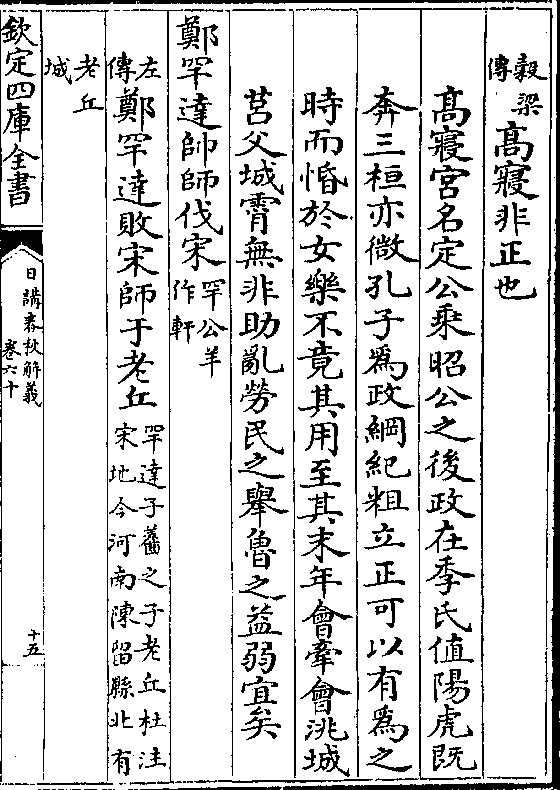 穀梁傳高寢非正也
高寢宮名定公乘昭公之後政在季氏值陽虎既
奔三桓亦微孔子爲政綱紀粗立正可以有爲之
時而惛於女樂不竟其用至其末年會牽會洮城
莒父城霄無非助亂勞民之舉魯之益弱宜矣
鄭罕達帥師伐宋罕公羊作軒
左傳鄭罕達敗宋師于老丘罕達子之子老丘杜注宋地今河南陳留縣北有
老丘城
欽定四庫全書
日講春秋解義
卷六十
十五